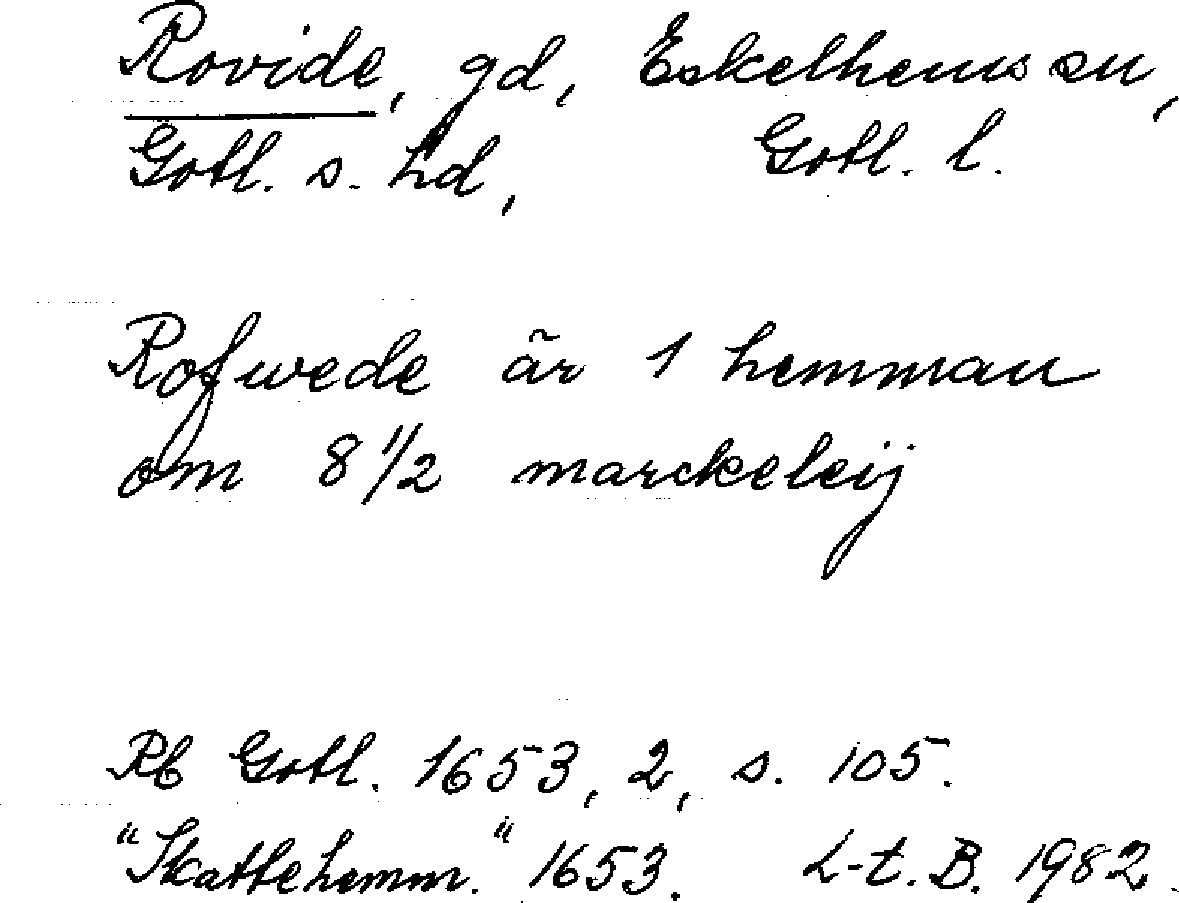 Rovide, gd, Eskelhems sn,
Gotl. s. hd, Gotl. l.
Rofwede är 1 hemman
om 8 1/2 marckeleij
Rb Gotl. 1653, 2, s. 105.
"Skattehemm." 1653. L-t. B. 1982.